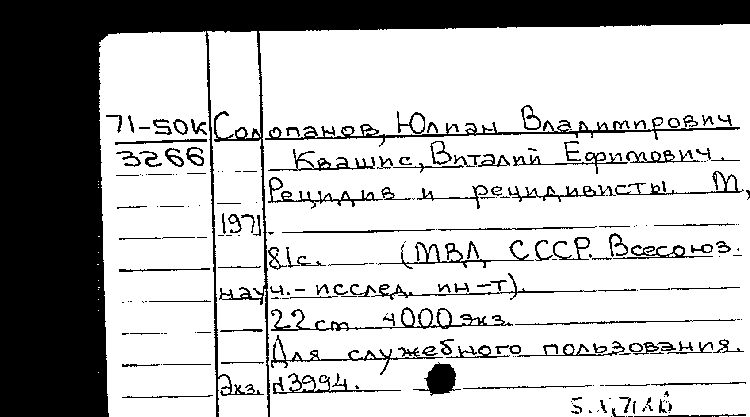 71-50К Солопанов, Юлиан Владимирович
3266 Квашис, Виталий Ефимович.
Рецидив и рецидивисты. М,
1971.
81с. (МВД СССР. Всесоюз.
науч.-исслед. ин-т).
22 cm 4000 экз.
Для служебного пользования.
Экз. N3994.